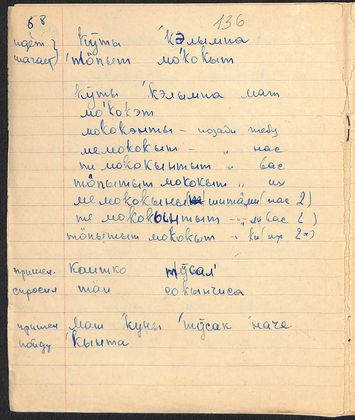 68
136
идёт } кӯты ʹкэлымпа
шагает } ʹтӧпыт моʹкокыт
кӯты ʹкэлымпа мат
моʹкокэт
мококэнты – позади тебя
ме мококыт – „ нас
ти мококынтыт „ вас
тӧпытыт мококыт „ их
ме мококыны (нас 2)
те мококынтыт (вас 2)
тӧпытыт мококыт (их 2х)
пришел каитко тӱсал
спросил тāи сокынчиса
пришел мат куны тӱсак наче
пойду кынта